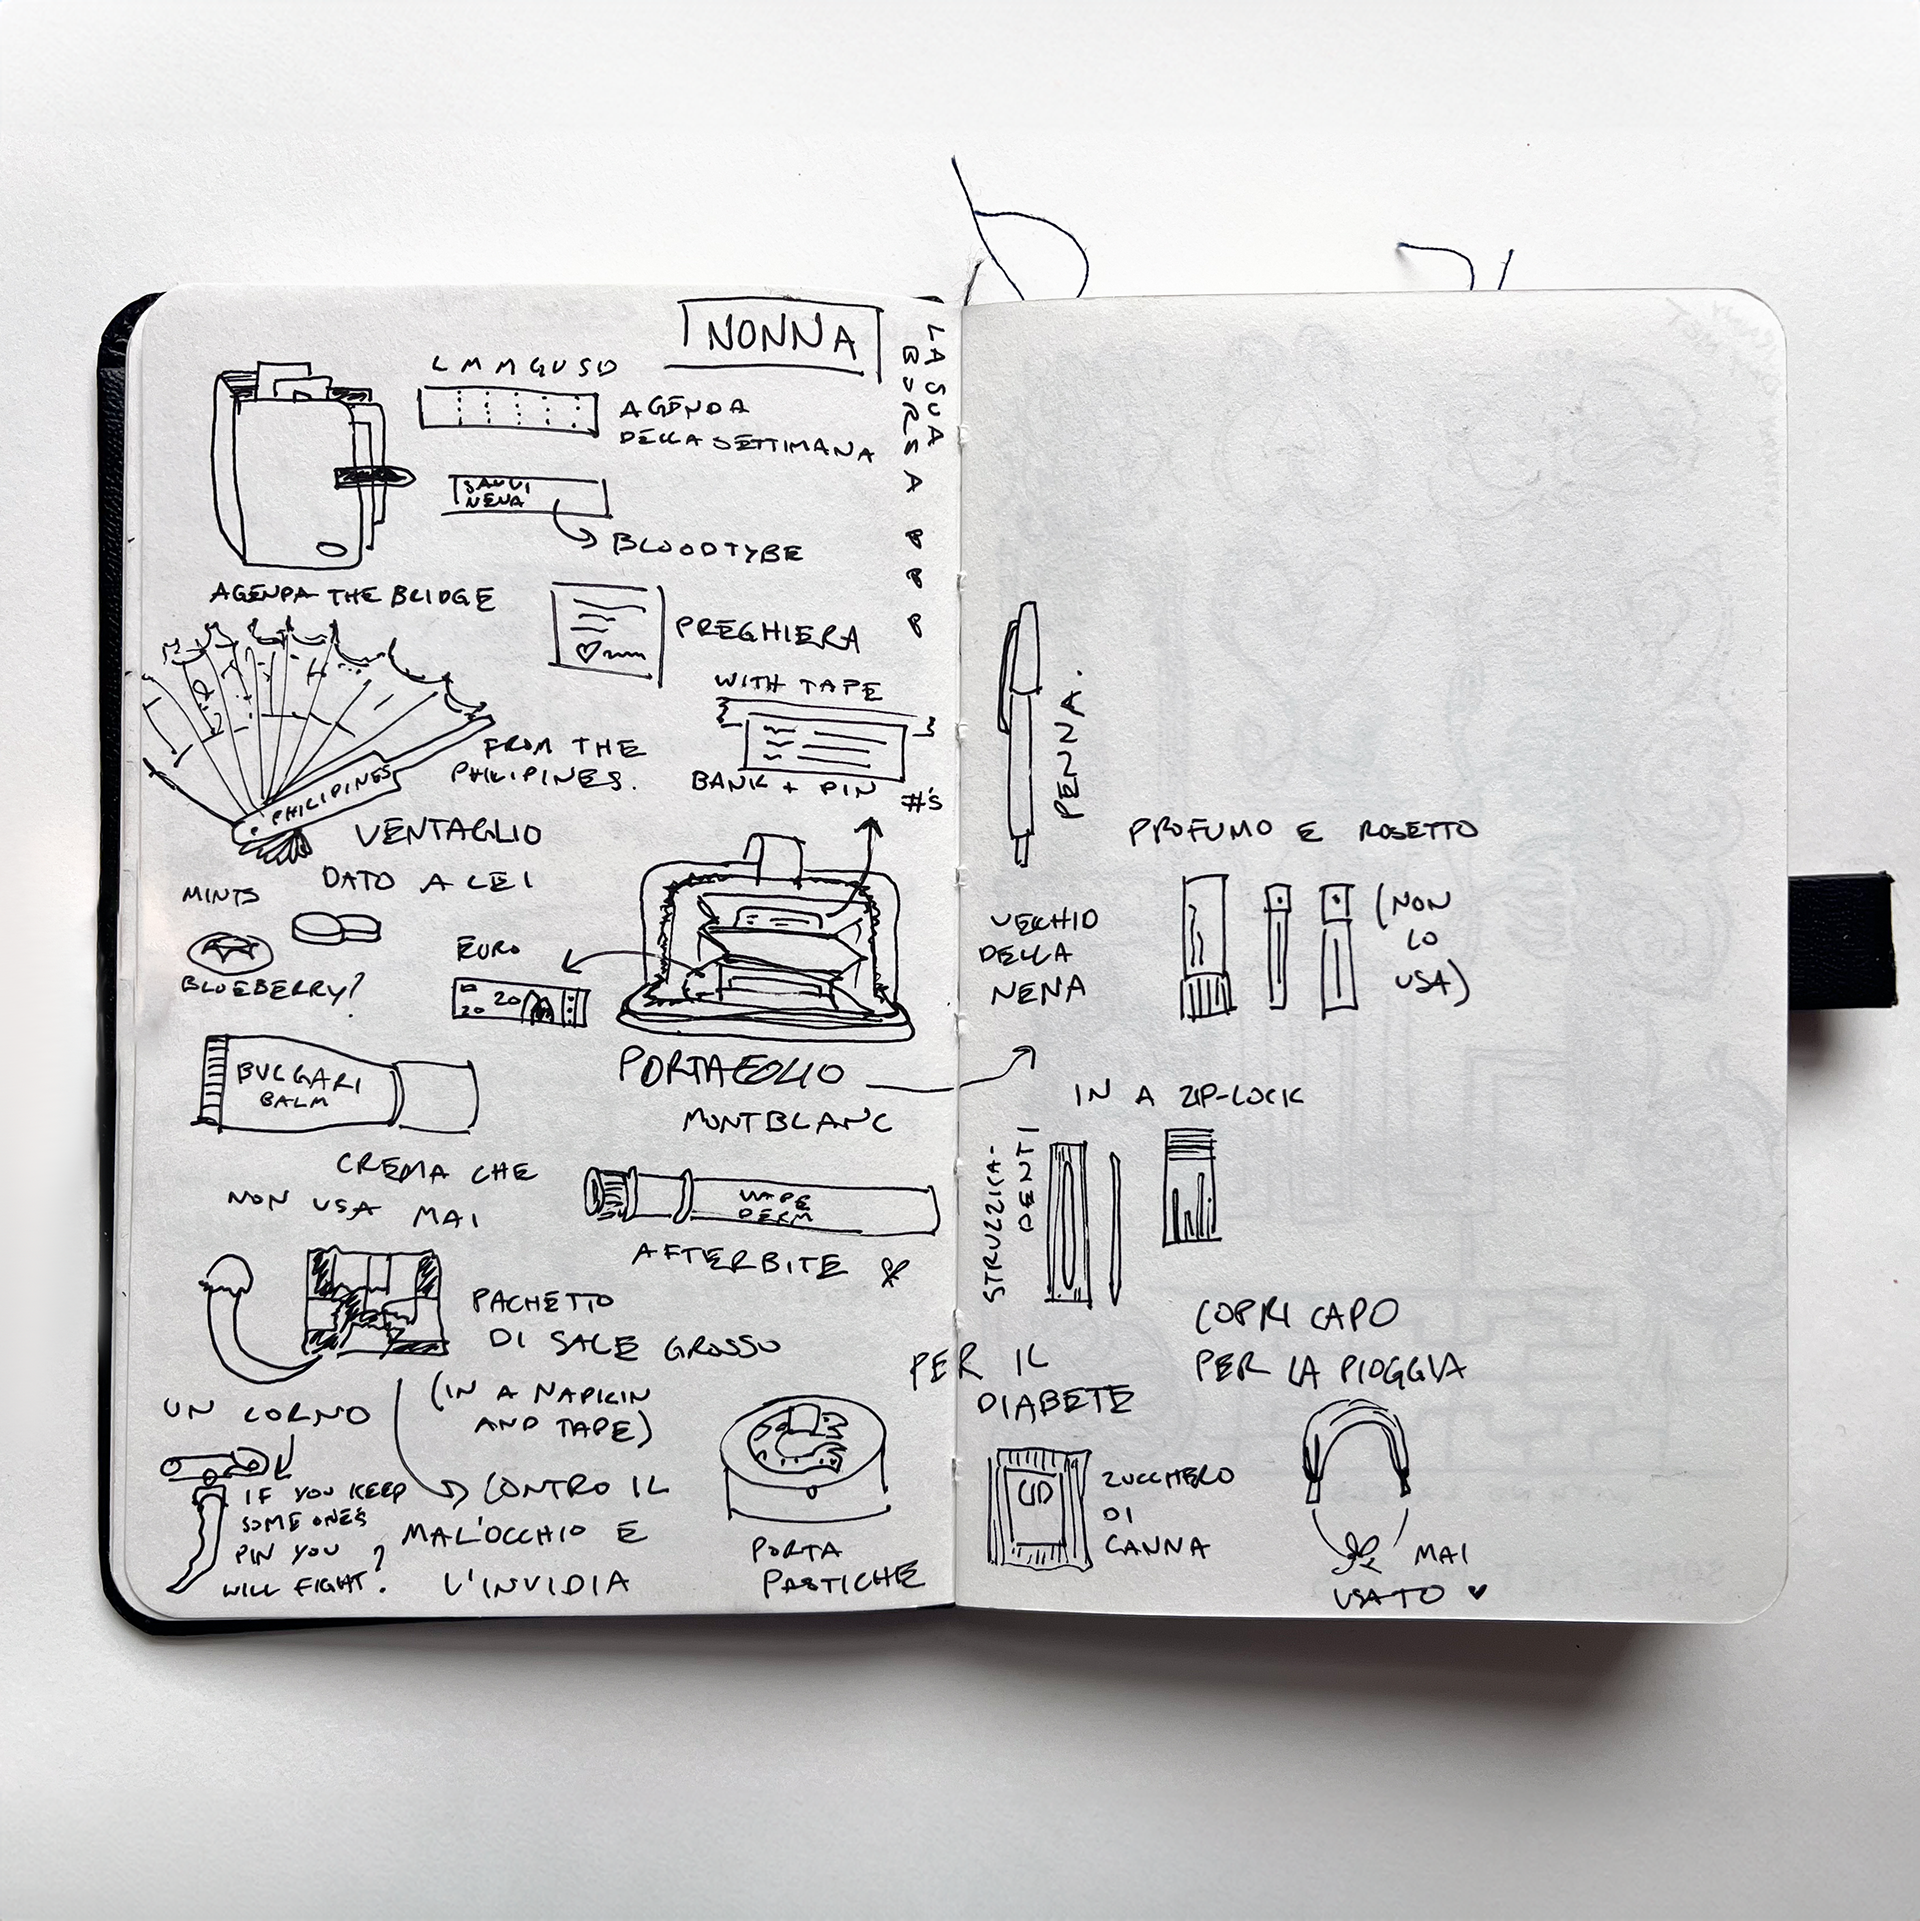 NONNA
LA SUA
BORSA
L M M G V S D
AGENDA
DELLA SETTIMANA
NENA
BLOODTYBE
AGENDA THE BRIDGE
PREGHIERA
WITH TAPE
BANK + PIN
#'S
FROM THE
PHILIPINES.
PHILIPINES
VENTAGLIO
DATO A LEI
MINTS
BLUEBERRY?
EURO
20
20
PORTAFOLIO
MONTBLANC
BULGARI
BALM
CREMA CHE
NON USA MAI
DERM
AFTERBITE
PACHETTO
DI SALE GROSSO
(IN A NAPKIN
AND TAPE)
UN CORNO
IF YOU KEEP
SOMEONE'S
PIN YOU
WILL FIGHT?
CONTRO IL
MAL'OCCHIO E
L'INVIDIA
PORTA
PASTICHE
PENNA.
PROFUMO E ROSETTO
(NON
LO
USA)
VECHIO
DELLA
NENA
IN A ZIP-LOCK
STRUZZIKA-
DENTI
PER IL
DIABETE
ZUCCHERO
DI
CANNA
COPRI CAPO
PER LA PIOGGIA
MAI
USATO ♥